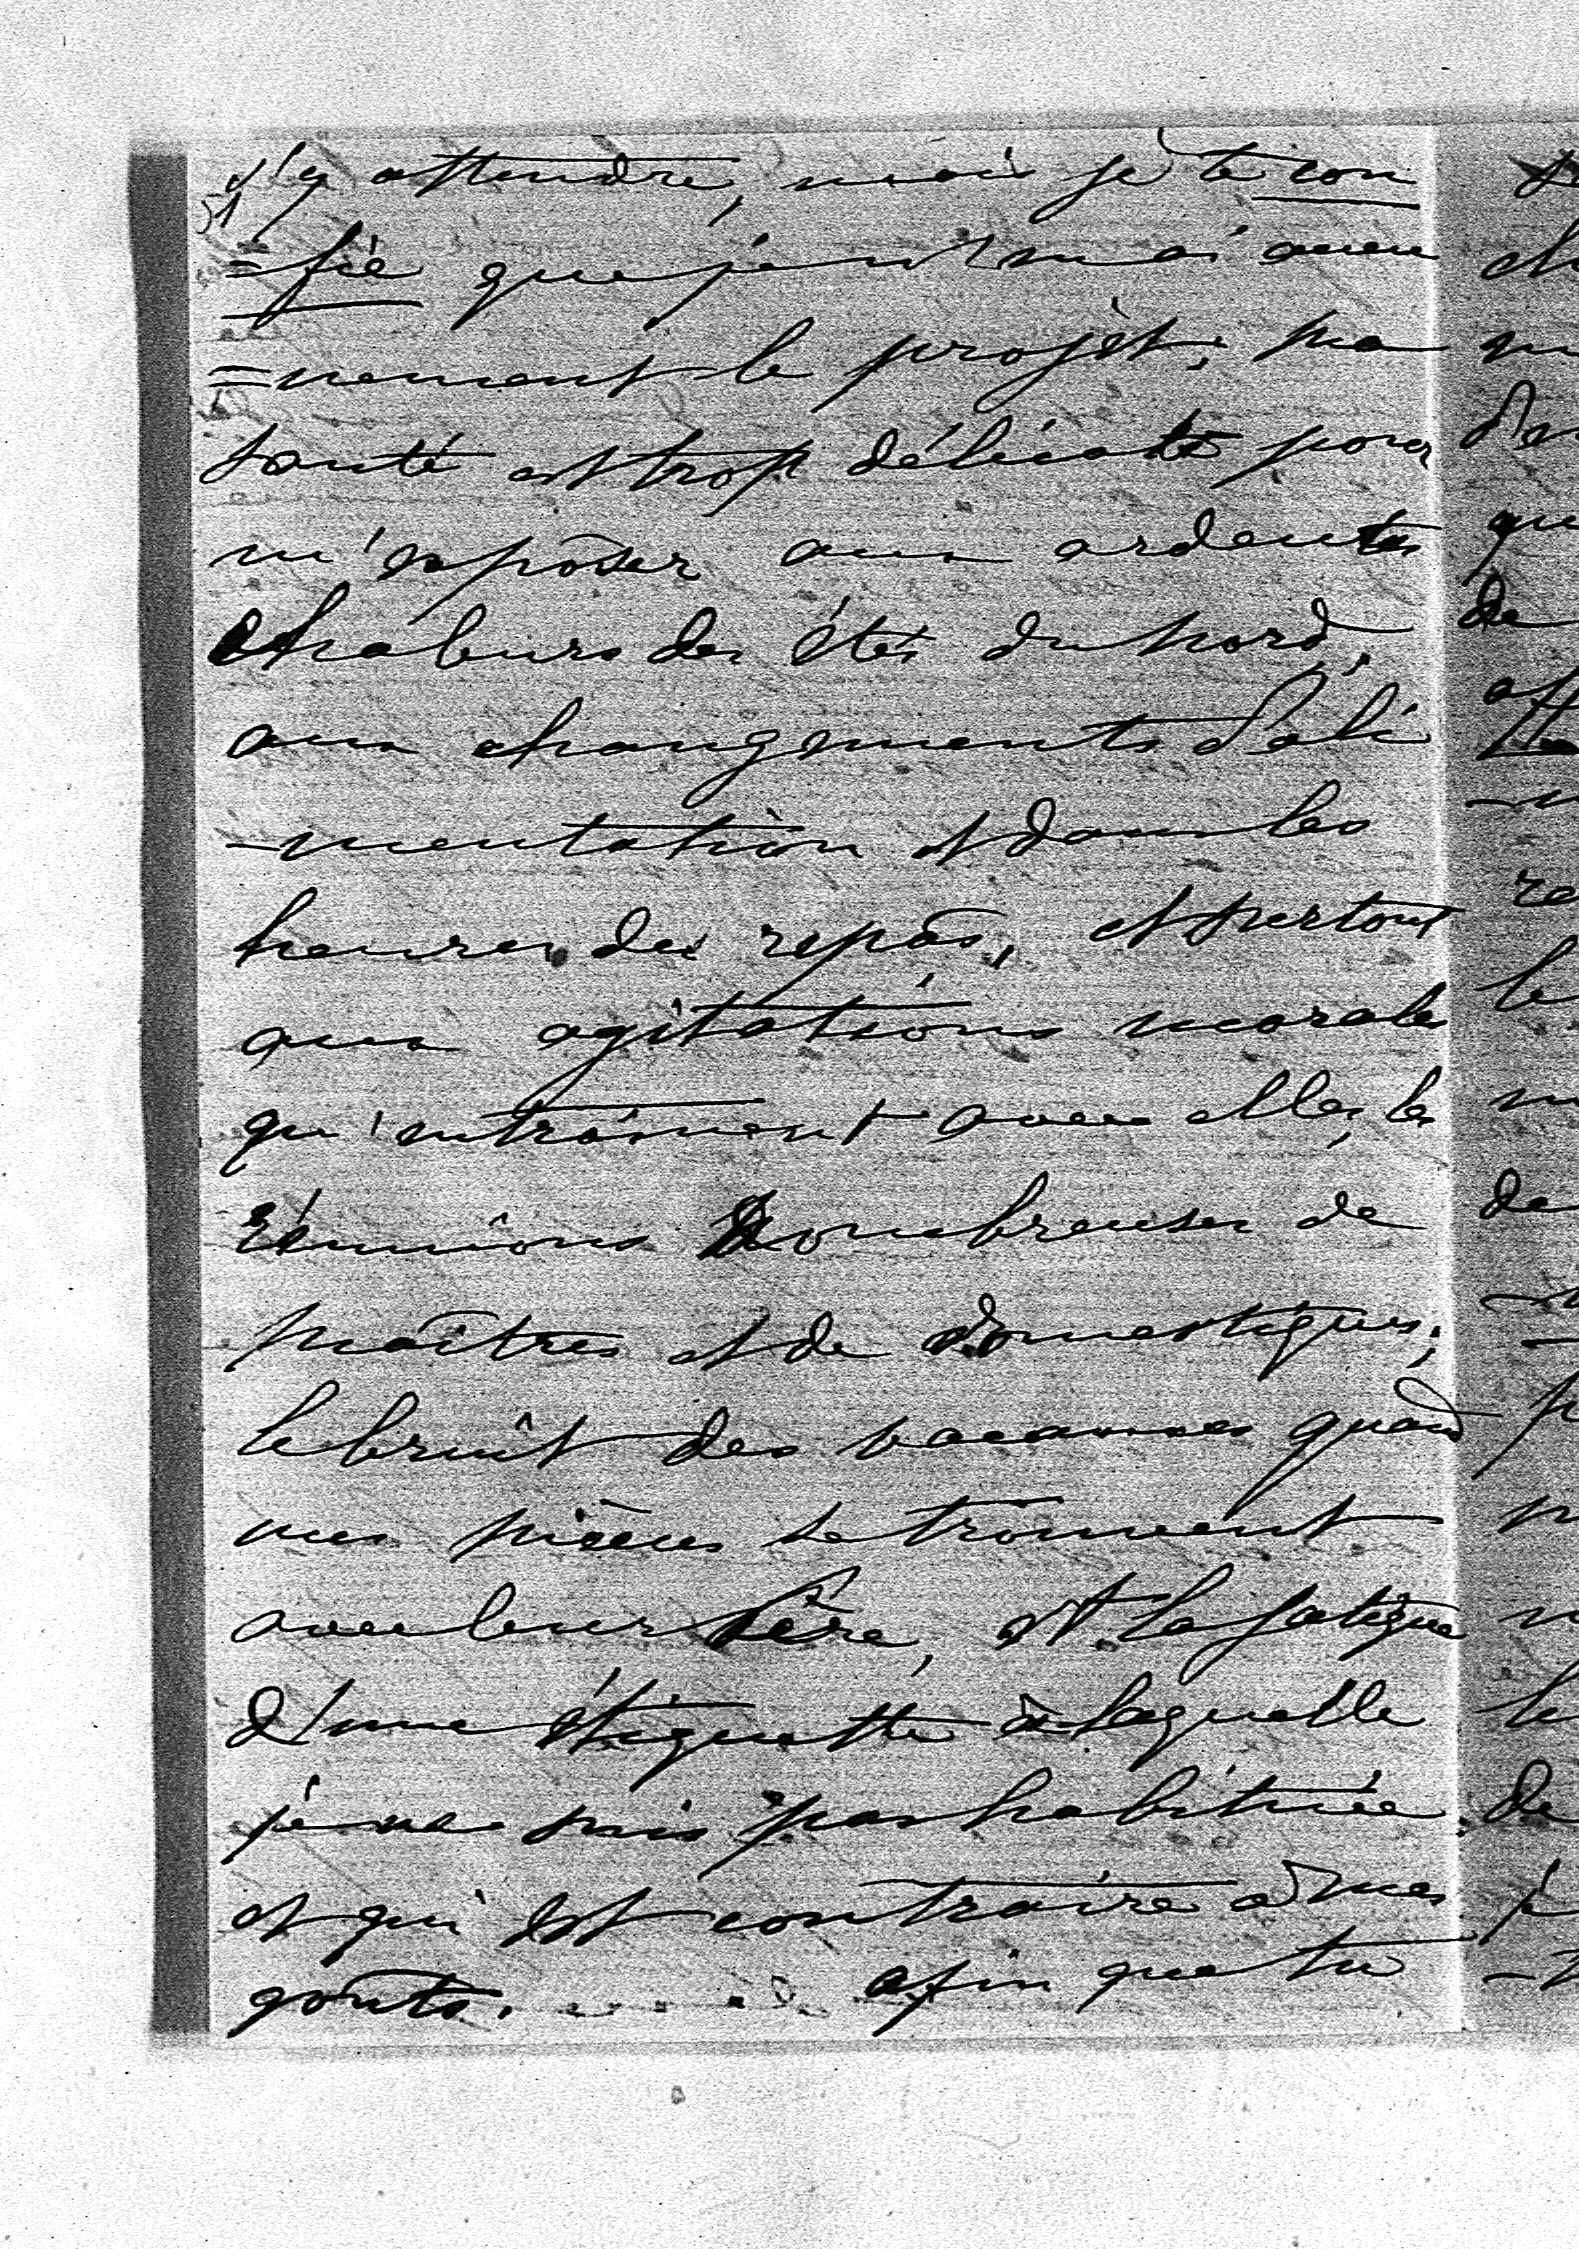 s'y attendre, mais je te con
=fie que je n'en ai aucu
=nement le projet; ma
santé est trop délicate pour
m'exposer aux ardentes
chaleurs des étés du nord,
aux changements d'ali
-mentation et dans les
heures des repas, et surtout
aux agitations morales
qu'entraînent avec elles, les
réunions nombreuses de
maîtres et de domestiques;
le bruit des vacances quand
mes nièces se trouvent
avec leur père, et la fatigue
d'une étiquette à laquelle
je ne suis pas habituée
et qui est contraire à mes
goûts. ...... afin que tu